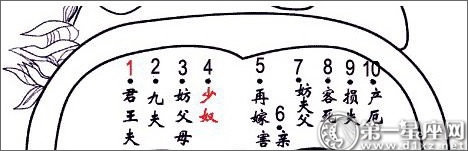 1·君王夫
2·九夫
3·妨父母
4·少奴
5·再嫁害
6·亲
7·妨夫父
8·客死
9·损夫
10·产厄
第一星座网
www.d1xz.net